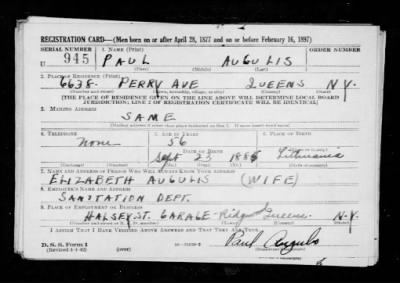 REGISTRATION CARD—(Men born on or after April 28, 1877 and on or before February 16, 1897)
SERIAL NUMBER 1. NAME (Print) ORDER NUMBER
U 945 PAUL AUGULIS
(First) (Middle) (Last)
2. PLACE OF RESIDENCE (Print)
6638 PERRY AVE QUEENS N.Y.
(Number and street) (Town, township, village, or city) (County) (State)
[THE PLACE OF RESIDENCE GIVEN ON THE LINE ABOVE WILL DETERMINE LOCAL BOARD
JURISDICTION; LINE 2 OF REGISTRATION CERTIFICATE WILL BE IDENTICAL]
3. MAILING ADDRESS
SAME
[Mailing address if other than place indicated on line 2. If same insert word same]
4. TELEPHONE 5. AGE IN YEARS 6. PLACE OF BIRTH
None 56
DATE OF BIRTH
Sept 23 1885 Lithuania
(Exchange) (Number) (Mo.) (Day) (Yr.) (State or country)
7. NAME AND ADDRESS OF PERSON WHO WILL ALWAYS KNOW YOUR ADDRESS
ELIZABETH AUGULIS (WIFE)
8. EMPLOYER'S NAME AND ADDRESS
SANITATION DEPT.
9. PLACE OF EMPLOYMENT OR BUSINESS
HALSEY ST. GARAGE Queens N.Y.
(Number and street or R. F. D. number) (Town) (County) (State)
I AFFIRM THAT I HAVE VERIFIED ABOVE ANSWERS AND THAT THEY ARE TRUE.
D. S. S. Form 1
(Revised 4-1-42) (over) Paul Augulis